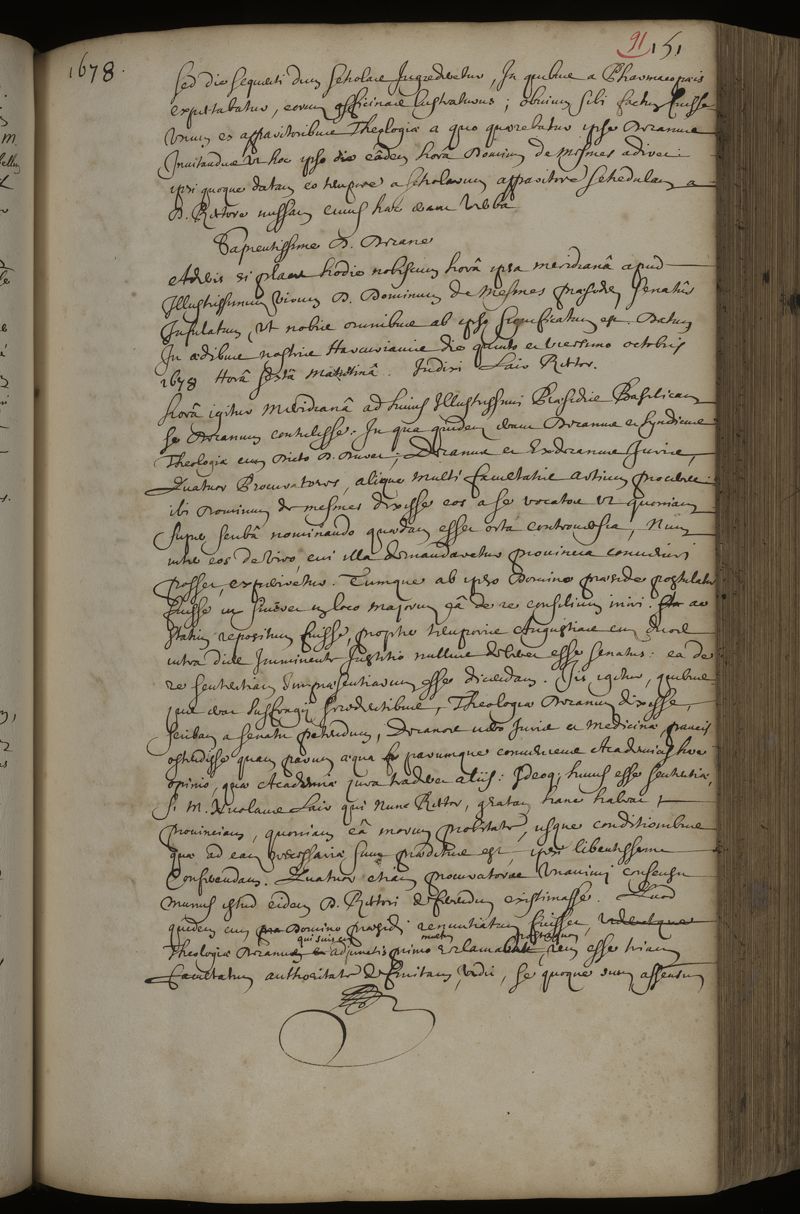 1678.
91 151
sed die sequenti dum scholas ingrederetur, in quibus a Pharmacopoeis
expectabatur, eorum officinas lustraturus; obvium sibi factum fuisse
unum ex apparitoribus Theologiae a quo quaerebatur ipse Decanus
invitandus ut hoc ipso die eâdem horâ Dominum de Mesmes adiret:
ipsi quoque datam eo tempore a scholarum apparitore schedulam a
D. Rectore missam cuius haec erant verba
Sapientissime D. Decane
Aderis si placet hodie nobiscum horâ ipsa meridianâ apud
Illustrissimum virum D. Dominum de Mesmes praesidem senatûs
Infulatum, ut nobis omnibus ab ipso significatum est. Datum
In aedibus nostris Harcurianis die quinto et vicesimo octobris
1678 Horâ sextâ matutinâ. Indixi Lair Rector.
horâ igitur meridianâ ad huius Illustrissimi Praesidis Basilicam
se Decanum contulisse. In qua quidem erant Decanus et syndicus
Theologiae cum dicto D. ; Decanus et Exdecanus Juris,
Quatuor Procuratores, alique multi facultatis artium proceres:
ibi Dominum de mesmes dixisse eos a se vocatos ut quoniam
super scribâ nominando quaedam esset orta controversia, num
inter eos de viro, cui illa demandaretur provincia convenire
posset, experiretur. Tumque ab ipso Domino praeside postulatum
fuisse ut sineret in loco majorum eâ de re consilium iniri. sed at
statim repositum fuisse, propter temporis angustias cum quod
intra dies imminente Justitio nullus deberet esse senatus: ea de
re sententiam in praesentiarum esse dicendam. Iis igitur, quibus
jus erat suffragii praecedentibus, Theologiae Decanum dixisse,
scribam a senatu petendum, Decanos vero Juris et medicinae, paucis
ostendisse quam parum aequa parumque conveniens Academicis haec
opinio, quae Academiae jura traderet aliis: Ideoq; huius esse sententiae,
si M. Nicolaus Lair qui nunc Rector, gratam hanc habeat
provinciam, quoniam eâ morum probitate, usque conditionibus
quae ad eam necessariae sunt praeditus est, ipsi libentissime
Conferendam. Quatuor etiam procuratores unanimi consensu
munus istud eidem D. Rectori deferendum existimasse. Quod
quidem cum Domino praesidi renuntiatum fuisset,
Theologiae Decanus qui suis cum adjunctis primo reclamabat, rem esse trium
facultatum authoritate definitam, vidit, se quoque suum assensum